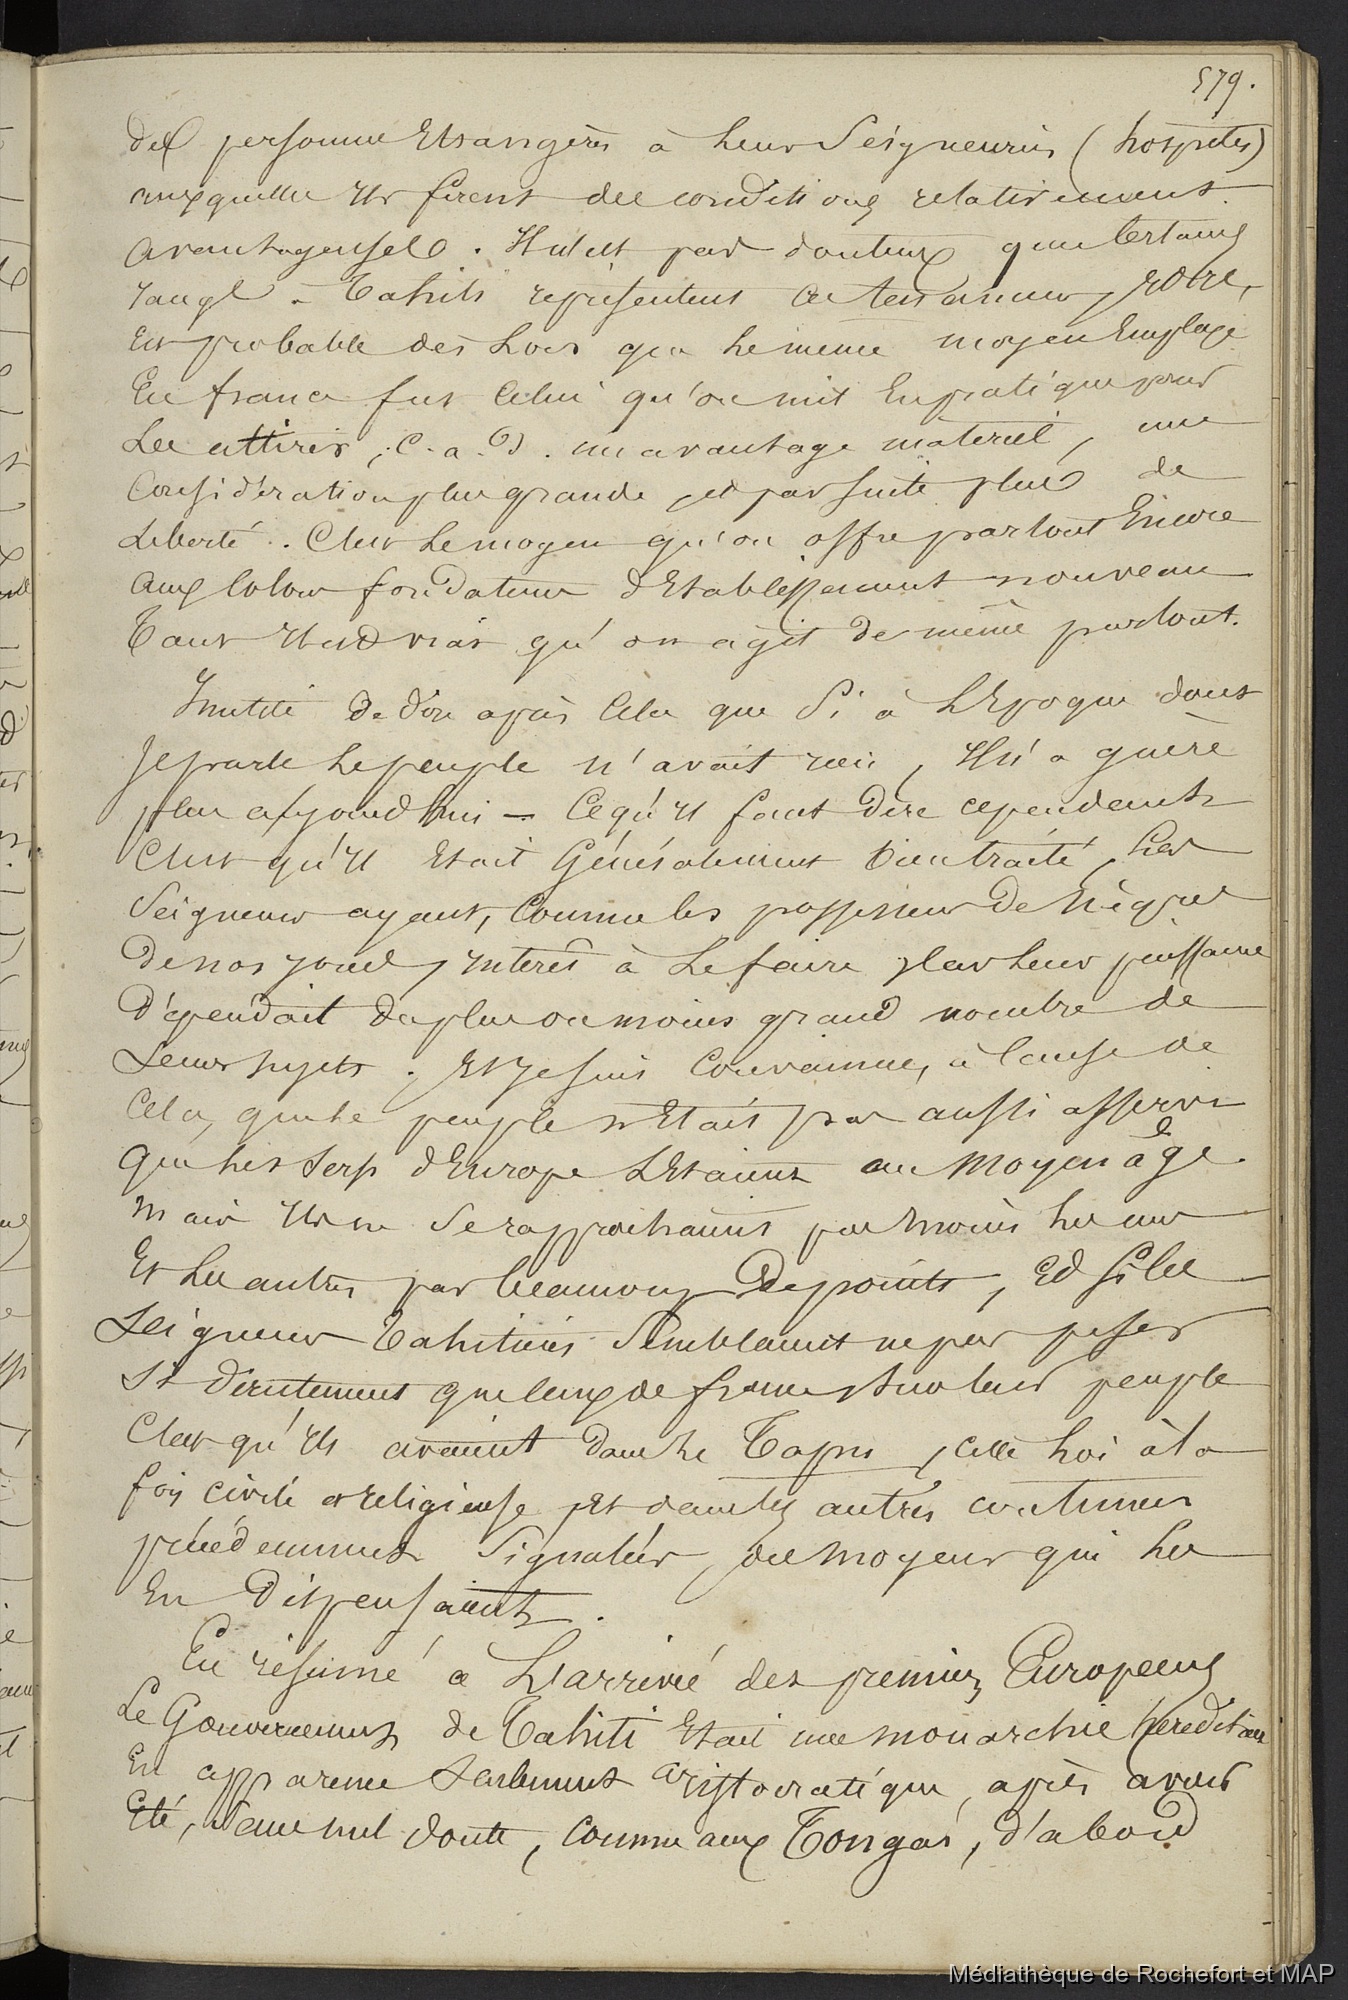 579.
des personnes Etrangères à leurs Seigneuries (hospites)
auxquelles ils firent des conditions relativement
avantageuses. Il n'est pas douteux que certains
rangs à Tahiti représentent ces tenanciers, et il
est probable dès lors que le même moyen employé
En france fut Celui qu'on mit En pratique pour
Les attirer, c. a. D. un avantage matériel, une
Considération plus grande, et par suite plus de
Liberté. C'est le moyen qu'on offre partout Encore
aux Colons fondateurs d'Etablissement nouveau
Tant il est vrai qu'on agit de même partout.
Inutile de dire après Cela que Si à L'Epoque dont
Je parle le peuple n'avait rien, Il n'a guère
plus aujourd'hui — Ce qu'il faut dire cependant
C'est qu'il Etait Généralement bien traité, les
Seigneurs ayant, Comme les possesseurs de Nègres
De nos jours, intérêt à le faire, car leur puissance
Dépendait du plus ou moins grand nombre de
Leurs sujets. Et je suis Convaincu, à Cause de
Cela, que le peuple n'Etait pas aussi asservi
que les serfs d'Europe L'Etaient au Moyen âge.
Mais ils ne Se rapprochaient pas moins les uns
Et les autres par beaucoup De points, Et si les
Seigneurs Tahitiens Semblaient ne pas peser
si directement que ceux de france sur leur peuple
C'est qu'ils avaient dans le Tapu, cette loi à la
fois civile et religieuse, Et dans les autres coutumes
précédemment Signalées, des moyens qui les
En Dispensaient.
En résumé à L'arrivée des premiers Européens
Le Gouvernement de Tahiti Etait une monarchie héréditaire
En apparence Seulement aristocratique, après avoir
Eté, Sans nul doute, Comme aux Tongas, d'abord
Médiathèque de Rochefort et MAP